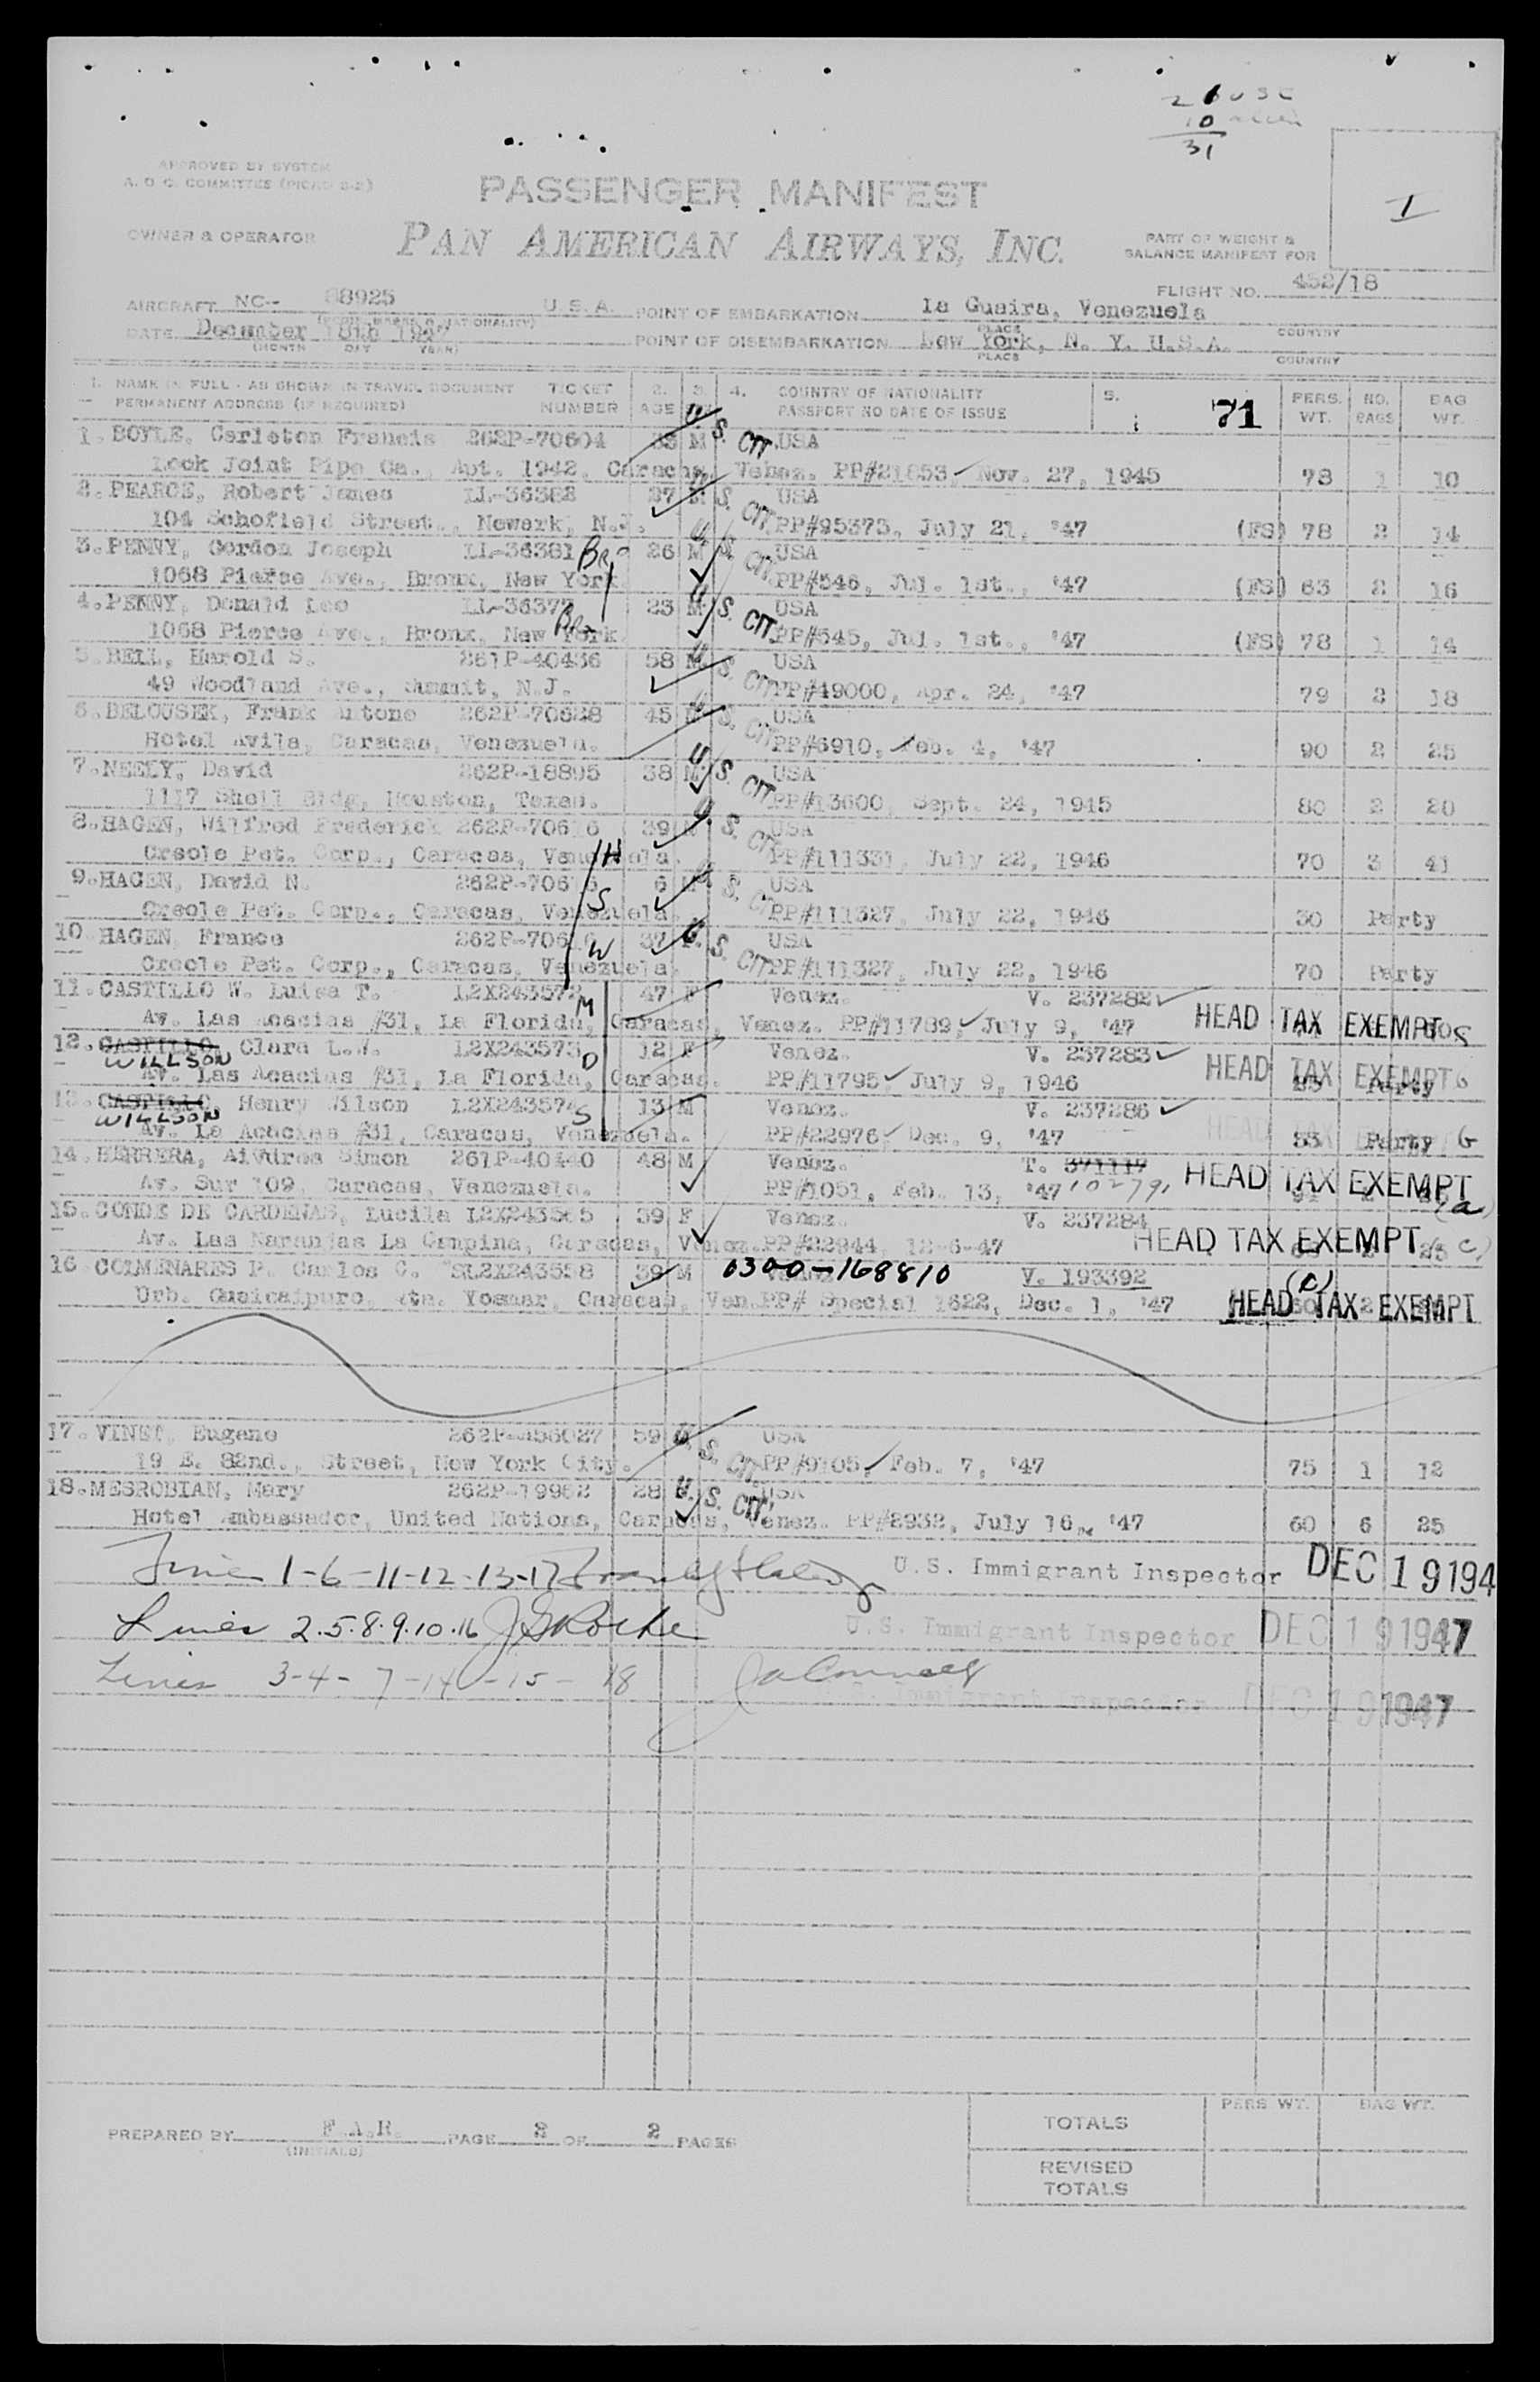 2 1 USC
10
31
APPROVED BY SYSTEM
A. O. C. COMMITTEE
PASSENGER MANIFEST
I
OWNER & OPERATOR
PAN AMERICAN AIRWAYS, INC.
PART OF WEIGHT &
BALANCE MANIFEST FOR
FLIGHT NO. 452/18
AIRCRAFT NC-- 88925 U.S.A. POINT OF EMBARKATION La Guaira, Venezuela
PLACE COUNTRY
DATE December 18th 1947 POINT OF DISEMBARKATION New York, N. Y. U.S.A.
(MONTH DAY YEAR) PLACE COUNTRY
1. NAME IN FULL - AS SHOWN IN TRAVEL DOCUMENT TICKET 2. 3. 4. COUNTRY OF NATIONALITY 5. 71 PERS. NO. BAG
PERMANENT ADDRESS (IF REQUIRED) NUMBER AGE PASSPORT NO DATE OF ISSUE WT. BAGS WT.
1. BOYLE, Carleton Francis 262P-70604 M U.S. CIT. USA
Lock Joint Pipe Co., Apt. 1942, Caracas, Venez. PP#21053, Nov. 27, 1945 78 1 10
2. PEARCE, Robert James LL-36382 27 U.S. CIT. USA
104 Schofield Street., Newark, N.J. PP#95373, July 21, '47 (FS) 78 2 14
3. PENNY, Gordon Joseph LL-36381 Bro 26 M U.S. CIT. USA
1068 Pierce Ave., Bronx, New York PP#546, Jul. 1st., '47 (FS) 63 2 16
4. PENNY, Donald Leo LL-36377 Bro 23 M U.S. CIT. USA
1068 Pierce Ave., Bronx, New York. PP#545, Jul. 1st., '47 (FS) 78 1 14
5. BELL, Harold S. 261P-40436 58 M U.S. CIT. USA
49 Woodland Ave., Summit, N.J. PP#49000, Apr. 24, '47 79 2 18
6. BELOUSEK, Frank Antone 262P-70628 45 M U.S. CIT. USA
Hotel Avila, Caracas, Venezuela. PP#6910, Feb. 4, '47 90 2 25
7. NEELY, David 262P-18895 38 M U.S. CIT. USA
1117 Shell Bldg, Houston, Texas. PP#13600, Sept. 24, 1945 80 2 20
8. HAGEN, Wilfred Frederick 262P-70616 39 M U.S. CIT. USA
Creole Pet. Corp., Caracas, Venezuela. H PP#111331, July 22, 1946 70 3 41
9. HAGEN, David N. 6 U.S. CIT. USA
Creole Pet. Corp., Caracas, Venezuela. S PP#111327, July 22, 1946 30 Party
10 HAGEN, France 37 U.S. CIT. USA
Creole Pet. Corp., Caracas, Venezuela. W PP#111327, July 22, 1946 70 Party
11. CASTILLO W. Luisa T. L2X243572 M 47 F Venez. V. 237282
Av. Las Acacias #31, La Florida, Caracas, Venez. PP#11789, July 9, '47 HEAD TAX EXEMPT
12. CASTILLO, Clara L.W. L2X243573 D 12 F Venez. V. 237283
WILLSON
Av. Las Acacias #31, La Florida, Caracas. PP#11795, July 9, 1946 HEAD TAX EXEMPT Party G
13. CASTILLO, Henry Wilson L2X243574 S 13 M Venez. V. 237286
WILLSON
Av. La Acacias #31, Caracas, Venezuela. PP#22976, Dec. 9, '47 HEAD 53 Party G
14. HERRERA, Simon 261P-40440 48 M Venez. T. 371117
Av. Sur 109, Caracas, Venezuela. PP#1051, Feb. 13, '47 HEAD TAX EXEMPT (a)
15. CONDE DE CARDENAS, Lucila L2X243565 39 F Venez. V. 237284
Av. Las Naranjas La Campina, Caracas, Venez. PP#22844, 12-6-47 HEAD TAX EXEMPT 25 (c)
16 COLMENARES P. Carlos C. SL2X243558 39 M 0300-168810 V. 193392
Urb. Guaicaipuro, Qta. Yosmar, Caracas, Ven. PP# Special 1622, Dec. 1, '47 HEAD TAX EXEMPT (C)
17. VINET, Eugene 59 U.S. CIT. USA
19 E. 82nd., Street, New York City. PP#9105, Feb. 7, '47 75 1 12
18. MESROBIAN, Mary 262P-19962 28 U.S. CIT. USA
Hotel Ambassador, United Nations, Caracas, Venez. PP#2932, July 16, '47 60 6 25
Lines 1-6-11-12-13-17 U.S. Immigrant Inspector DEC 19 194
Lines 2.5.8.9.10.16 J. G. Roche U.S. Immigrant Inspector DEC 19 1947
Lines 3-4-7-14-15-18 Immigrant Inspector DEC 19 1947
PREPARED BY F.A.R. PAGE 2 OF 2 PAGES
(INITIALS)
PERS WT. BAG WT.
TOTALS
REVISED
TOTALS